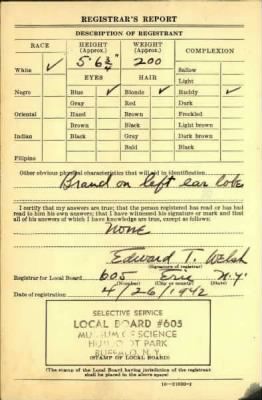 REGISTRAR'S REPORT
DESCRIPTION OF REGISTRANT
RACE HEIGHT (Approx.) WEIGHT (Approx.) COMPLEXION
5' 6 3/4" 200
White ✓ Sallow
EYES HAIR Light
Negro Blue ✓ Blonde ✓ Ruddy ✓
Gray Red Dark
Oriental Hazel Brown Freckled
Brown Black Light brown
Indian Black Gray Dark brown
Bald Black
Filipino
Other obvious physical characteristics that will aid in identification
Brand on left ear lobe
I certify that my answers are true; that the person registered has read or has had
read to him his own answers; that I have witnessed his signature or mark and that
all of his answers of which I have knowledge are true, except as follows:
None
Edward T. Welsh
(Signature of registrar)
Registrar for Local Board 605 Erie N.Y.
(Number) (City or county) (State)
Date of registration 4/26/1942
SELECTIVE SERVICE
LOCAL BOARD #605
MUSEUM OF SCIENCE
HUMBOLDT PARK
BUFFALO, N. Y.
(STAMP OF LOCAL BOARD)
(The stamp of the Local Board having jurisdiction of the registrant
shall be placed in the above space)